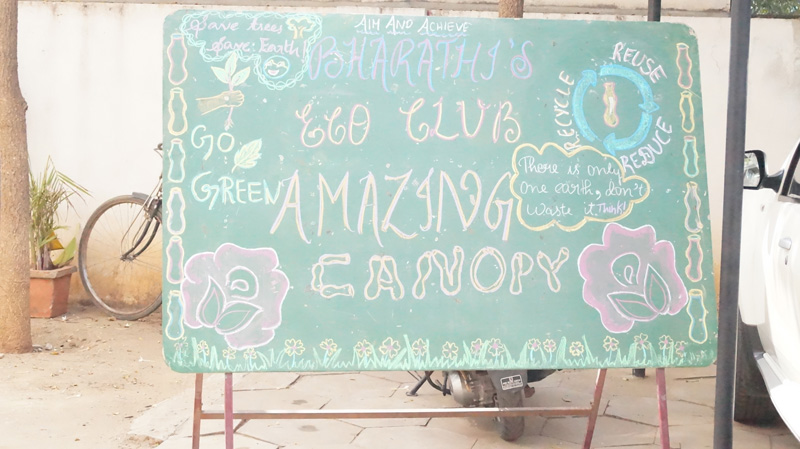 AIM AND ACHIEVE
Save trees
Save Earth!
BHARATHI'S
ECO CLUB
GO
GREEN
REUSE
REDUCE
RECYCLE
There is only
one earth, don't
waste it Think!
AMAZING
CANOPY